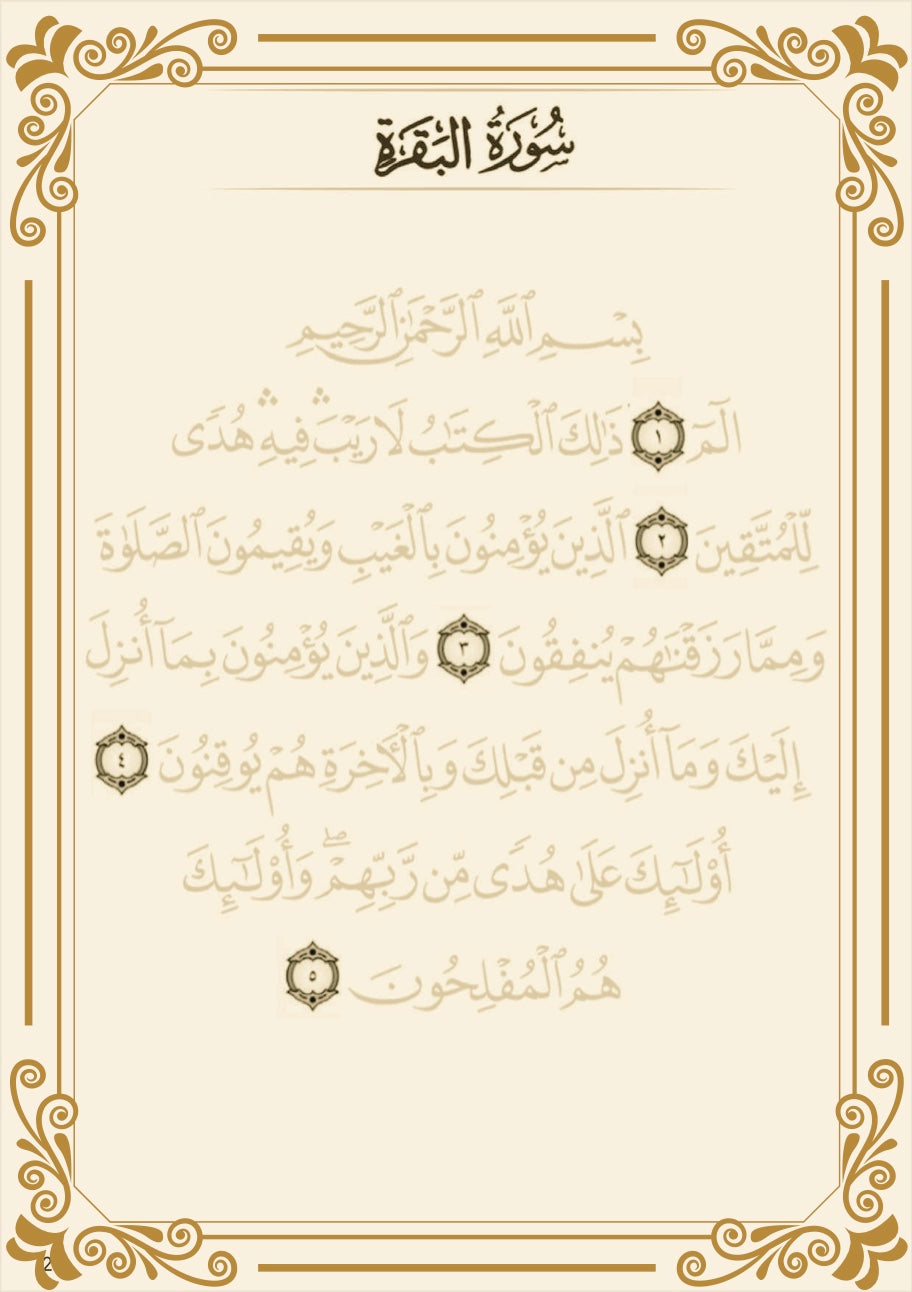 سُورَةُ البَقَرَةِ
بِسْمِ ٱللَّهِ ٱلرَّحْمَٰنِ ٱلرَّحِيمِ
الٓمٓ ١ ذَٰلِكَ ٱلْكِتَٰبُ لَا رَيْبَ ۛ فِيهِ ۛ هُدًى
لِّلْمُتَّقِينَ ٢ ٱلَّذِينَ يُؤْمِنُونَ بِٱلْغَيْبِ وَيُقِيمُونَ ٱلصَّلَوٰةَ
وَمِمَّا رَزَقْنَٰهُمْ يُنفِقُونَ ٣ وَٱلَّذِينَ يُؤْمِنُونَ بِمَآ أُنزِلَ
إِلَيْكَ وَمَآ أُنزِلَ مِن قَبْلِكَ وَبِٱلْأَخِرَةِ هُمْ يُوقِنُونَ ٤
أُو۟لَٰٓئِكَ عَلَىٰ هُدًى مِّن رَّبِّهِمْ ۖ وَأُو۟لَٰٓئِكَ
هُمُ ٱلْمُفْلِحُونَ ٥
2